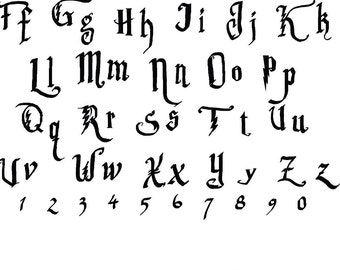 Ff Gg Hh Ii Jj Kk
Ll Mm Nn Oo Pp
Qq Rr Ss Tt Uu
Vv Ww Xx Yy Zz
1 2 3 4 5 6 7 8 9 0